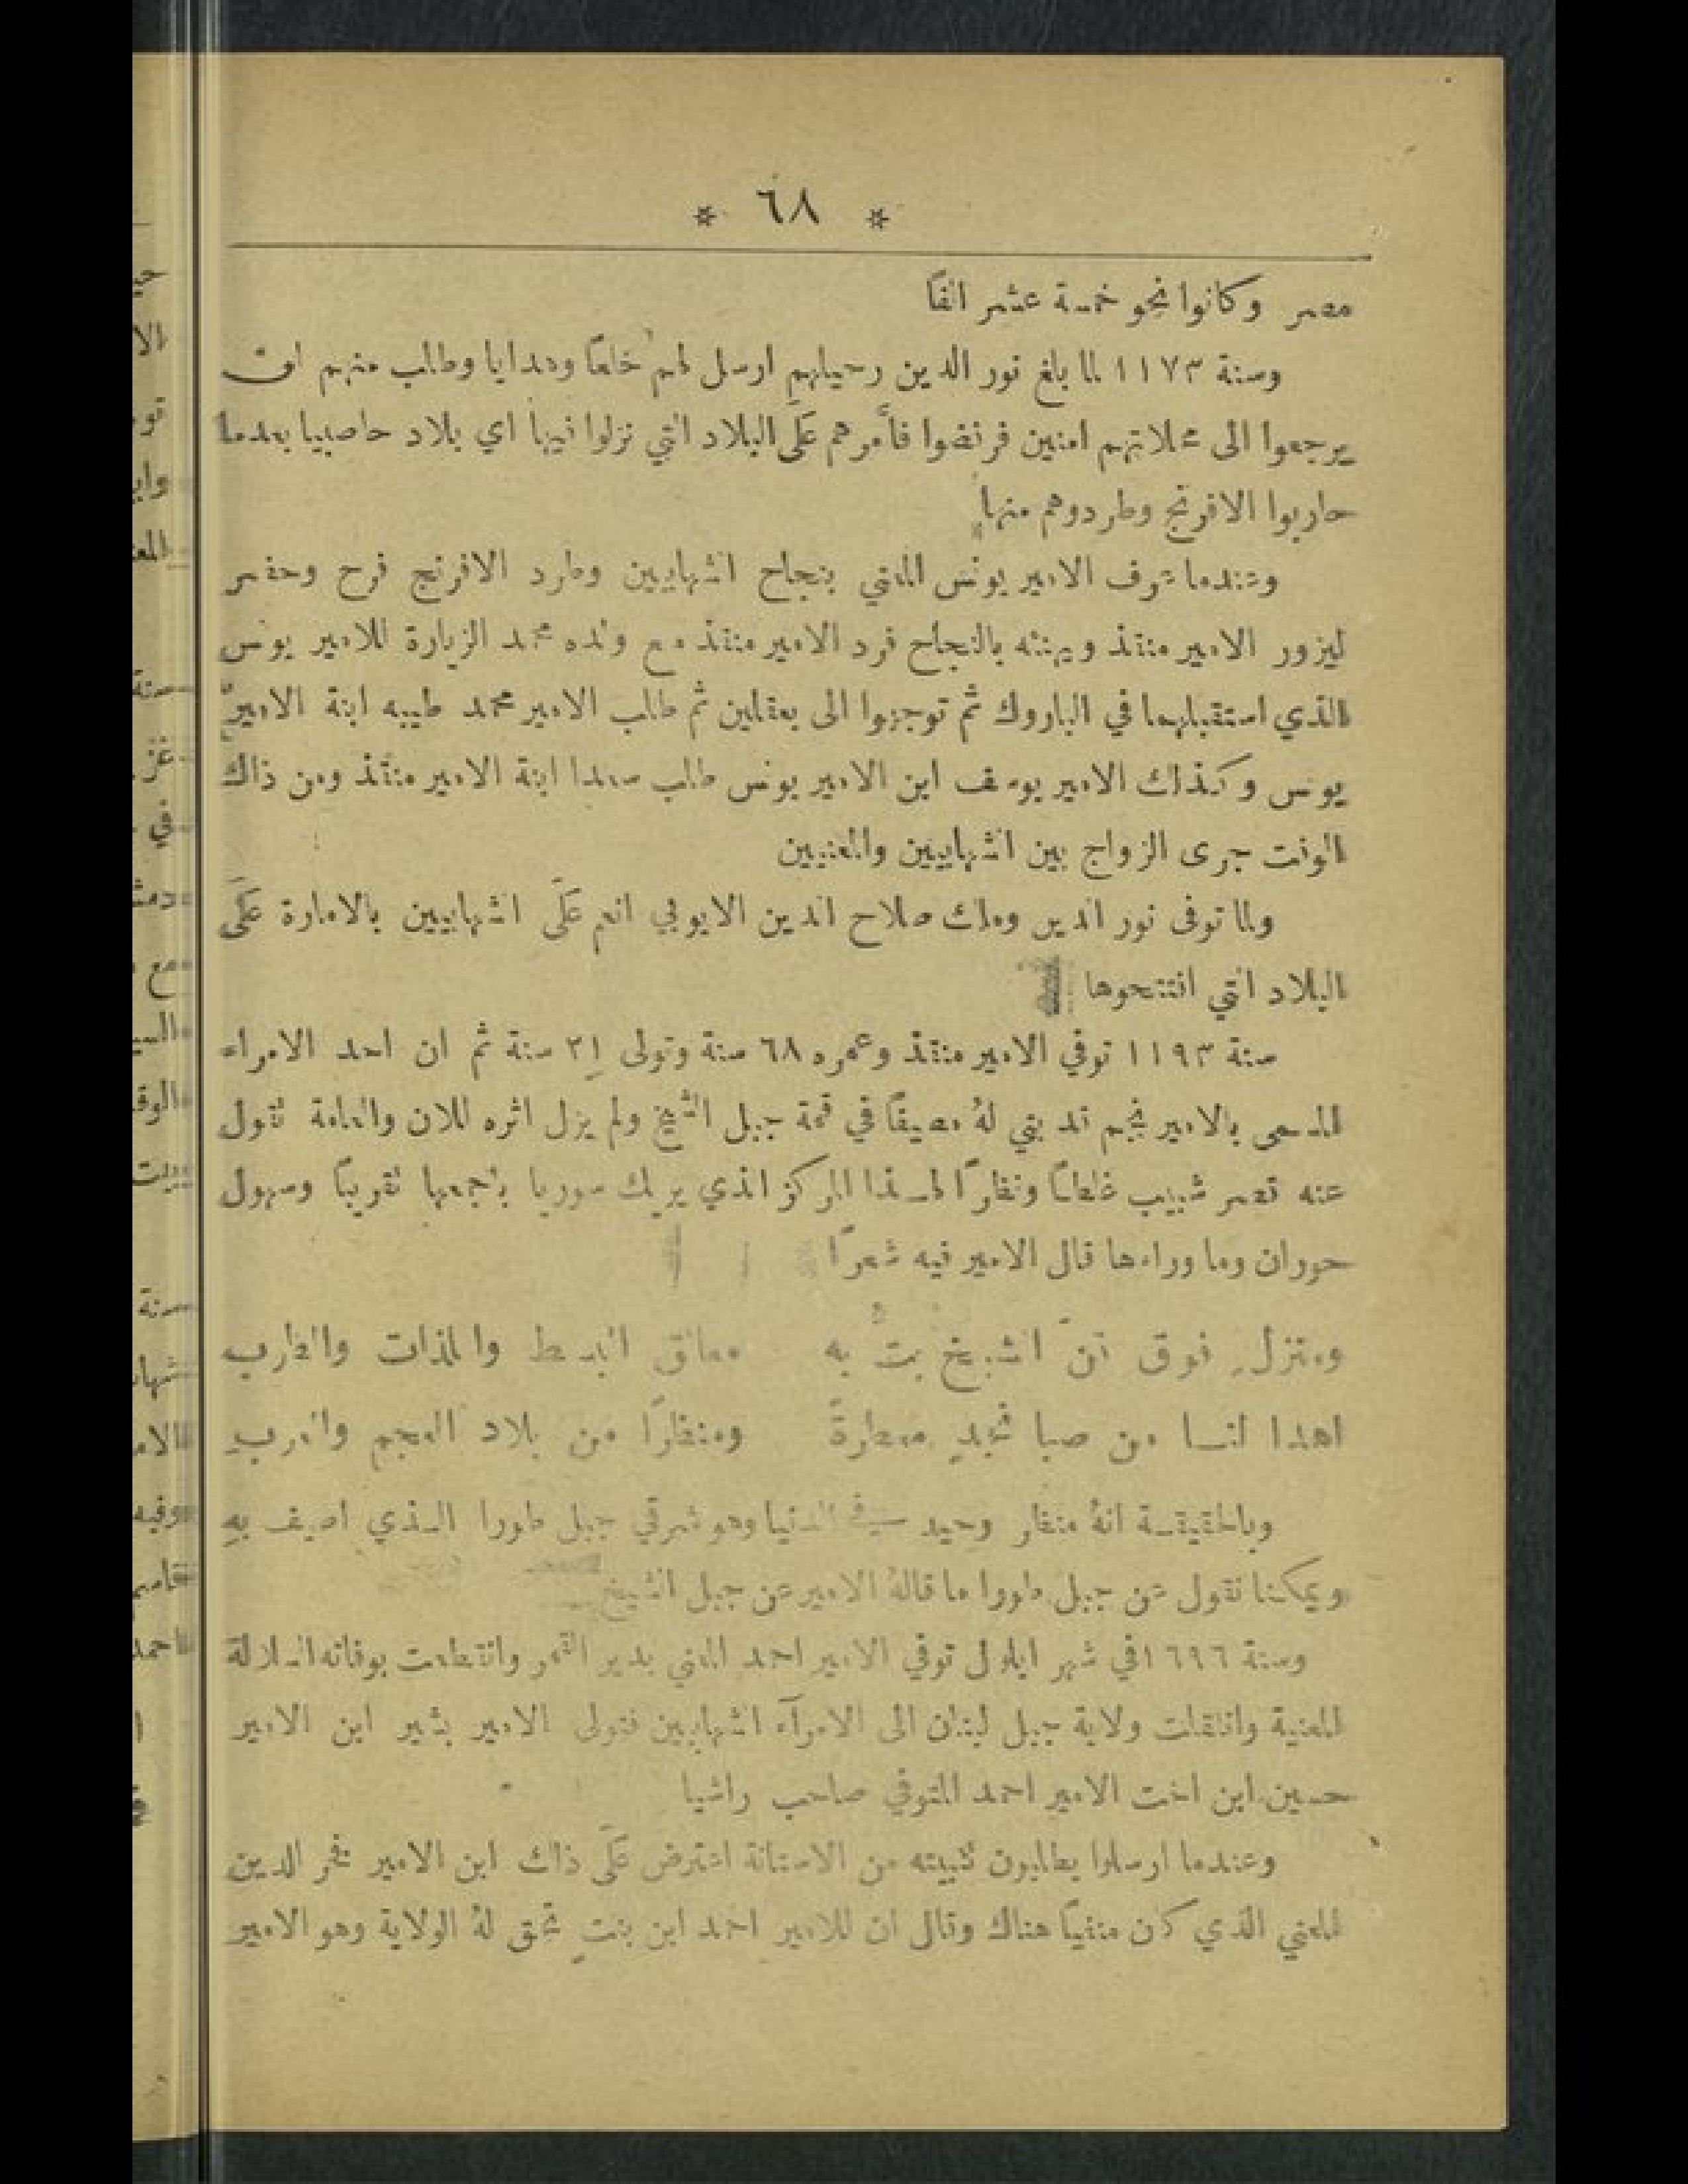 * ٦٨ *
مصر وكانوا نحو خمسة عشر الفًا
وسنة ١١٧٣ لما بلغ نور الدين رحيلهم ارسل لهم خلعًا وهدايا وطلب منهم ان
يرجعوا الى محلاتهم امنين فرفضوا فأمرهم علَى البلاد التي نزلوا فيها اي بلاد حاصبيا بعدما
حاربوا الافرنج وطردوهم منها
وعندما عرف الامير يونس المعني بنجاح الشهابيين وطرد الافرنج فرح وحضر
ليزور الامير منقذ ويهنئه بالنجاح فرد الامير منقذ مع ولده محمد الزيارة للامير يونس
الذي استقبلهما في الباروك ثم توجهوا الى بعقلين ثم طلب الامير محمد طيبه ابنة الامير
يونس وكذلك الامير يوسف ابن الامير يونس طلب سعدا ابنة الامير منقذ ومن ذاك
الوقت جرى الزواج بين الشهابيين والمعنيين
ولما توفى نور الدين وملك صلاح الدين الايوبي انعم علَى الشهابيين بالامارة علَى
البلاد التي افتتحوها
سنة ١١٩٣ توفي الامير منقذ وعمره ٦٨ سنة وتولى ٢١ سنة ثم ان احد الامراء
المسمى بالامير نجم قد بني لهُ مصيفًا في قمة جبل الشيخ ولم يزل اثره للان والعامة تقول
عنه قصر شبيب غلطًا ونظرًا لهذا المركز الذي يريك سوريا باجمعها تقريبًا وسهول
حوران وما وراءها قال الامير فيه شعرًا
ومنزل فوق تنّ الشيخ بتُّ به معانق البسط والمذات والطرب
اهدا لنا من صبا نجدٍ معطرةً ومنظرًا من بلاد العجم والعربِ
وبالحقيقة انهُ منظر وحيد في الدنيا وهو شرقي جبل طورا الذي اصيف بهِ
ويمكننا نقول عن جبل طورا ما قالهُ الامير عن جبل الشيخ
وسنة ١٦٩٦ في شهر ايلول توفي الامير احمد المعني بدير القمر وانقطعت بوفاته السلالة
المعنية وانتقلت ولاية جبل لبنان الى الامرآء الشهابيين فتولى الامير بشير ابن الامير
حسين ابن اخت الامير احمد المتوفي صاحب راشيا
وعندما ارسلوا يطلبون تثبيته من الاستانة اعترض علَى ذاك ابن الامير فخر الدين
المعني الذي كان منفيًا هناك وقال ان للامير احمد ابن بنتٍ تحق لهُ الولاية وهو الامير